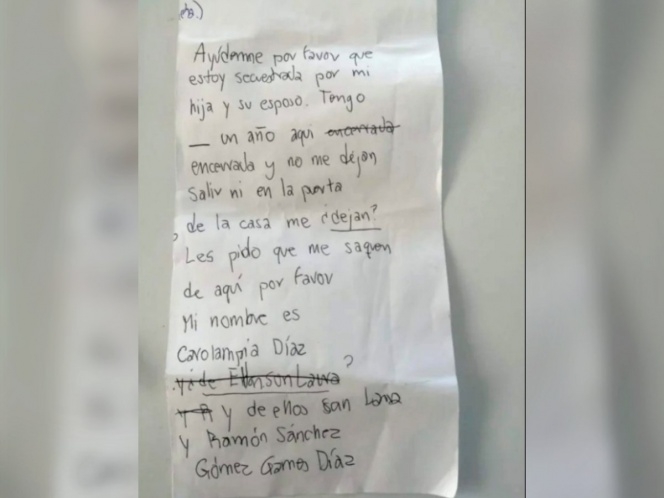 Ayúdenme por favor que
estoy secuestrada por mi
hija y su esposo. Tengo
_ un año aqui encerrada
encerrada y no me dejan
Salir ni en la porta
de la casa me ¿dejan?
Les pido que me saquen
de aquí por favor
Mi nombre es
Carolampia Díaz
y de ellos son Laura ?
y de ellos son Lana
y Ramón Sánchez
Gómez Gomes Díaz